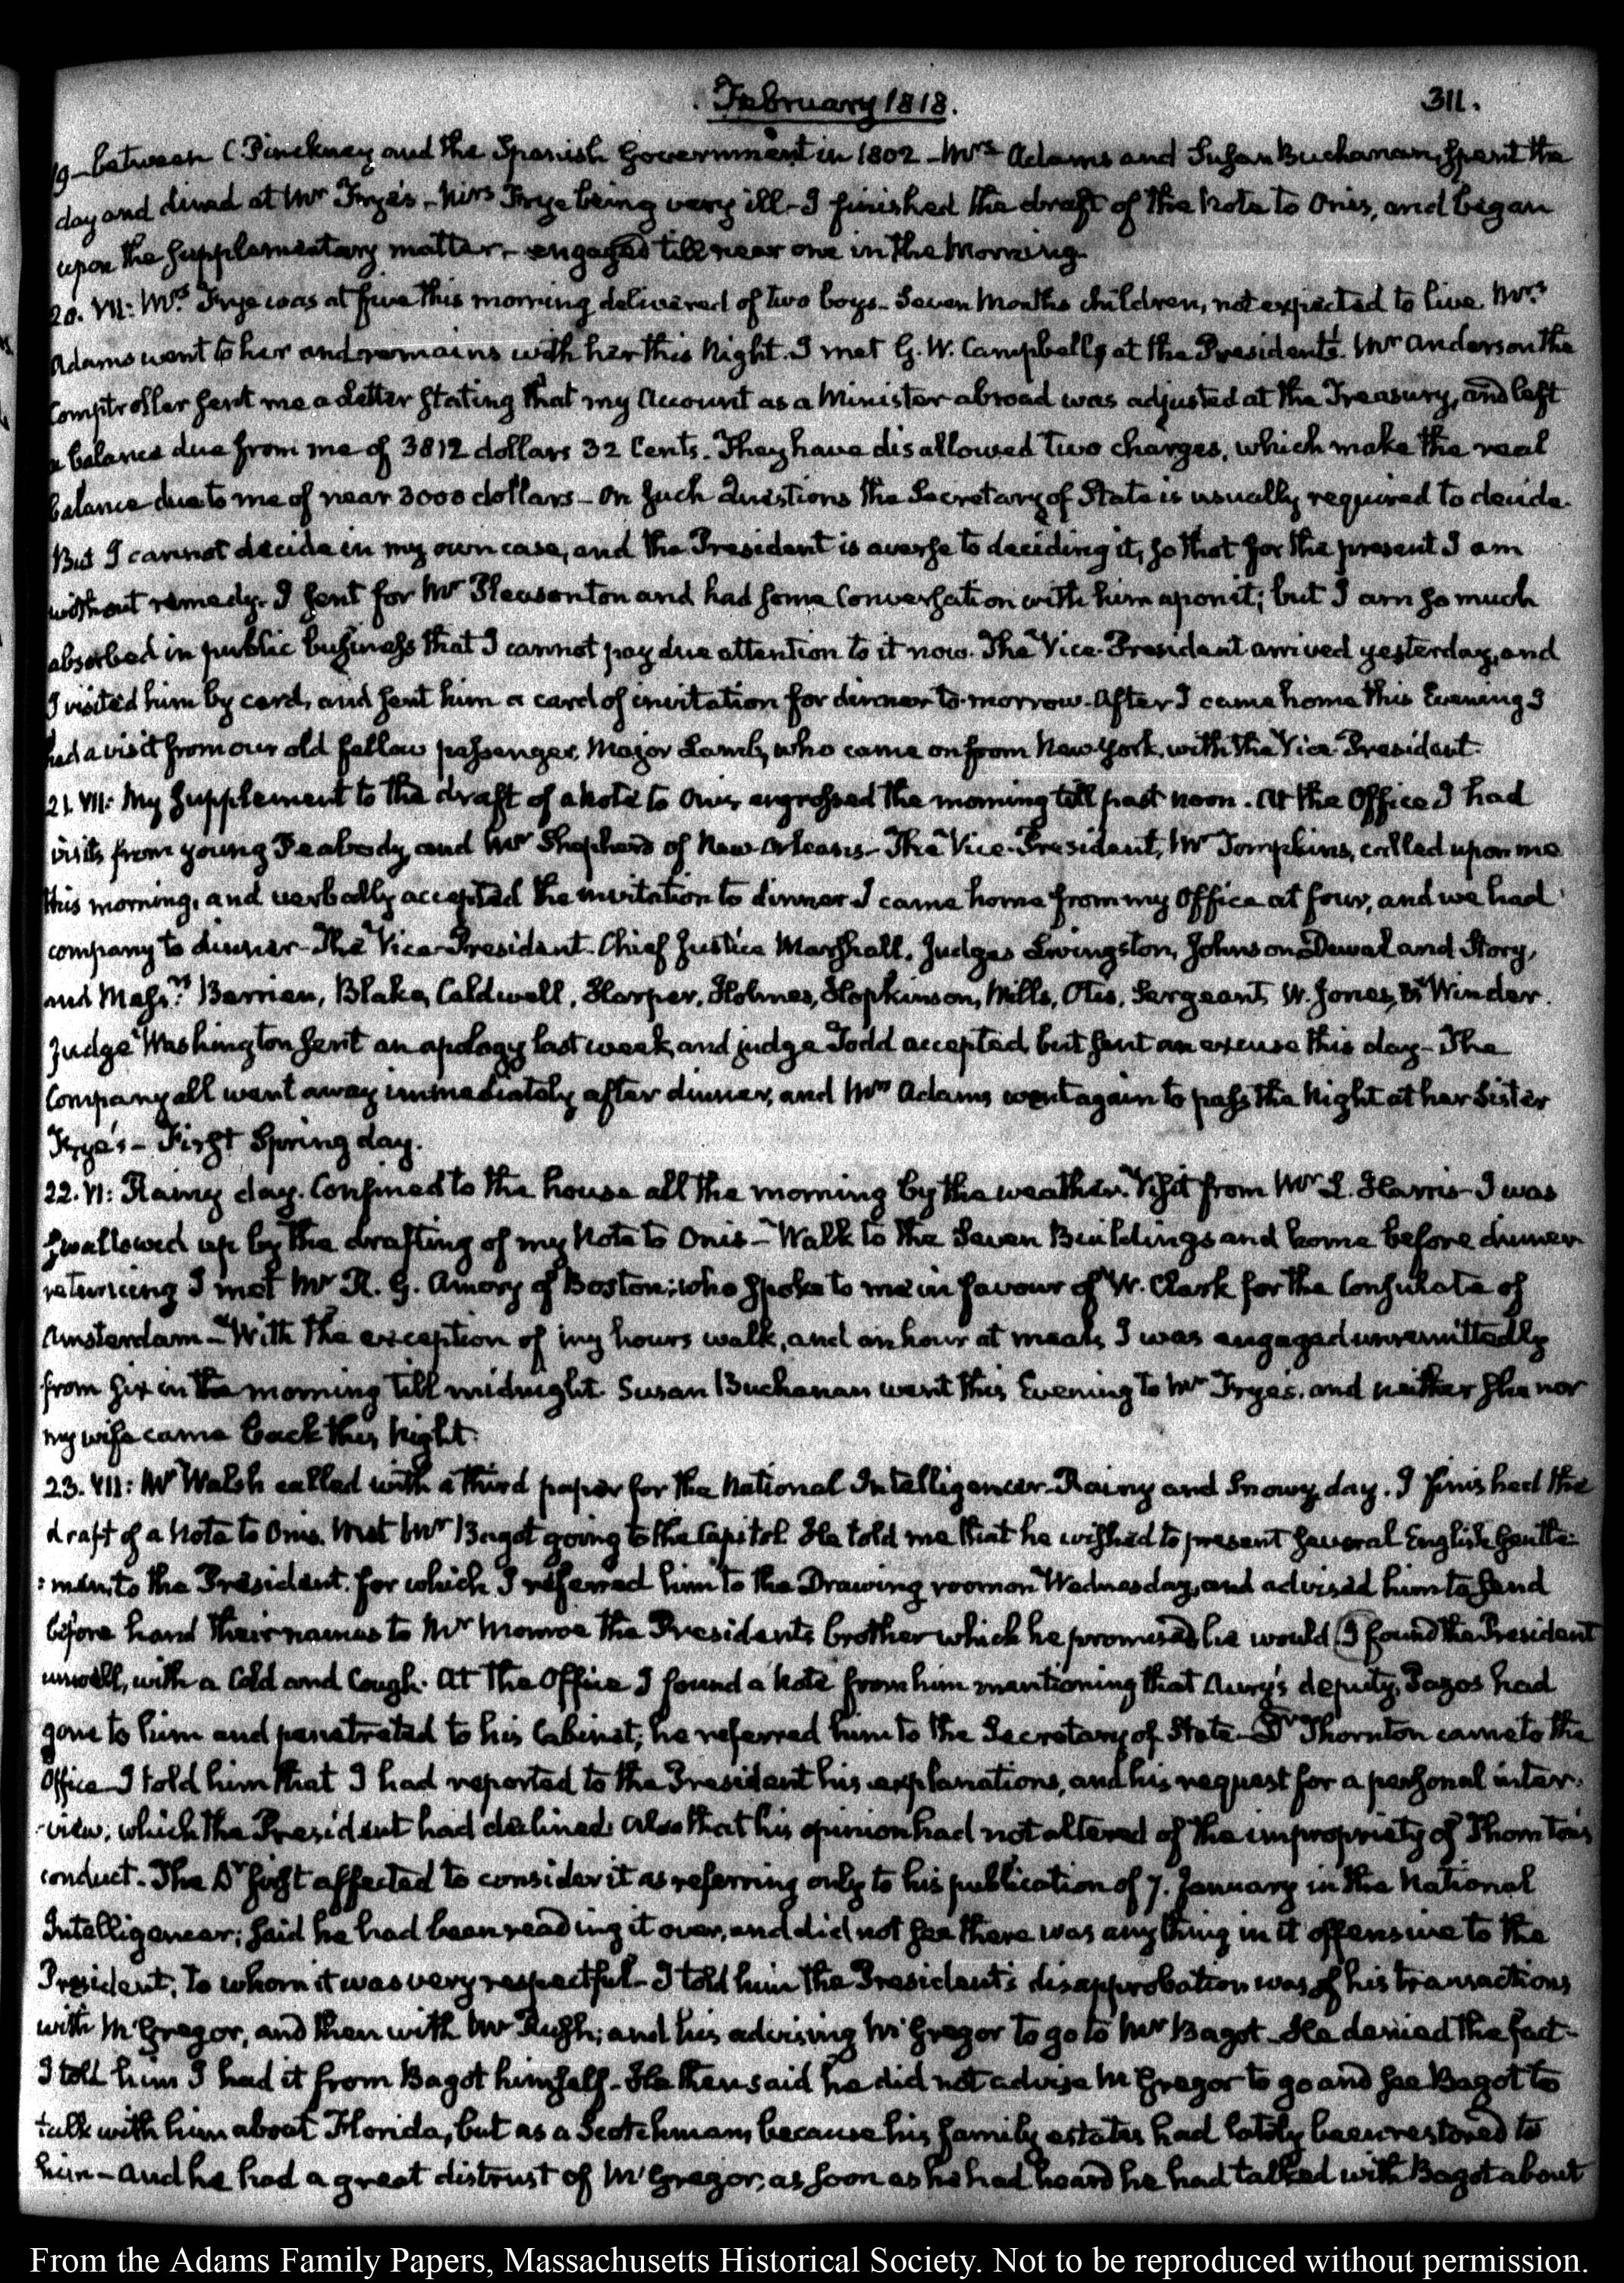 February 1818.
311.
19 – between C. Pinckney and the Spanish Government in 1802 – Mrs Adams and Susan Buchanan, spent the
day and dined at Mr Frye's – Mrs Frye being very ill – I finished the draft of the Note to Onis, and began
upon the supplementary matter – engaged till near one in the Morning.
20. VII: Mrs Frye was at five this morning delivered of two boys – Seven Months children, not expected to live. Mrs
Adams went to her and remains with her this Night. I met G. W. Campbell, at the President's. Mr Anderson the
Comptroller sent me a Letter stating that my Account as a Minister abroad was adjusted at the Treasury, and left
a balance due from me of 3812 dollars 32 Cents. They have disallowed two charges, which make the real
balance due to me of near 3000 dollars – On such Questions the Secretary of State is usually required to decide.
But I cannot decide in my own case, and the President is averse to deciding it, so that for the present I am
without remedy. I sent for Mr Pleasonton and had some Conversation with him upon it; but I am so much
absorbed in public business that I cannot pay due attention to it now. The Vice-President arrived yesterday, and
I visited him by card, and sent him a card of invitation for dinner to-morrow. After I came home this Evening I
had a visit from our old fellow passenger, Major Lamb, who came on from New-York, with the Vice-President.
21. VII: My Supplement to the draft of a Note to Onis, engrossed the morning till past noon. At the Office I had
visits from young Peabody, and Mr Shepherd of New-Orleans – The Vice-President, Mr Tompkins, called upon me
this morning, and verbally accepted the invitation to dinner I came home from my Office at four, and we had
company to dinner – The Vice-President. Chief Justice Marshall, Judges Livingston, Johnson Duval and Story,
and Messrs Berrien, Blake, Caldwell, Harper, Holmes, Hopkinson, Mills, Otis, Sergeant, W. Jones, & Winder.
Judge Washington sent an apology last week, and judge Todd accepted, but sent an excuse this day – The
Company all went away immediately after dinner, and Mrs Adams went again to pass the Night at her Sister
Frye's – First Spring day.
22. VI: Rainy day. Confined to the house all the morning by the weather. Visit from Mr L. Harris – I was
swallowed up by the drafting of my Note to Onis – Walk to the Seven Buildings and home before dinner
returning I met Mr R. G. Amory of Boston; who spoke to me in favour of W. Clark for the Consulate of
Amsterdam – With the exception of my hours walk, and an hour at meals, I was engaged unremittedly
from six in the morning till midnight. Susan Buchanan went this Evening to Mr Frye's, and neither she nor
my wife came back this Night.
23. VII: Mr Walsh called with a third paper for the National Intelligencer – Rainy and Snowy day. I finished the
draft of a Note to Onis. Met Mr Bagot going to the Capitol. He told me that he wished to present several English Gentle-
:men, to the President. for which I referred him to the Drawing room on Wednesday, and advised him to send
before hand their names to Mr Monroe the Presidents brother which he promised he would. I found the President
unwell, with a Cold and Cough. At the Office I found a Note from him mentioning that Aury's deputy, Pazos had
gone to him and penetrated to his Cabinet; he referred him to the Secretary of State – Dr Thornton came to the
Office – I told him that I had reported to the President his explanations, and his request for a personal inter-
-view, which the President had declined. Also that his opinion had not altered of the impropriety of Thornton's
conduct. The Dr first affected to consider it as referring only to his publication of 7. January in the National
Intelligencer; said he had been reading it over, and did not see there was any thing in it offensive to the
President, to whom it was very respectful – I told him the President's disapprobation was of his transactions
with McGregor, and then with Mr Rush; and his advising McGregor to go to Mr Bagot – He denied the fact –
I told him I had it from Bagot himself – He then said he did not advise McGregor to go and see Bagot to
talk with him about Florida, but as a Scotchman, because his family estates had lately been restored to
him – and he had a great distrust of McGregor, as soon as he had heard he had talked with Bagot about
From the Adams Family Papers, Massachusetts Historical Society. Not to be reproduced without permission.